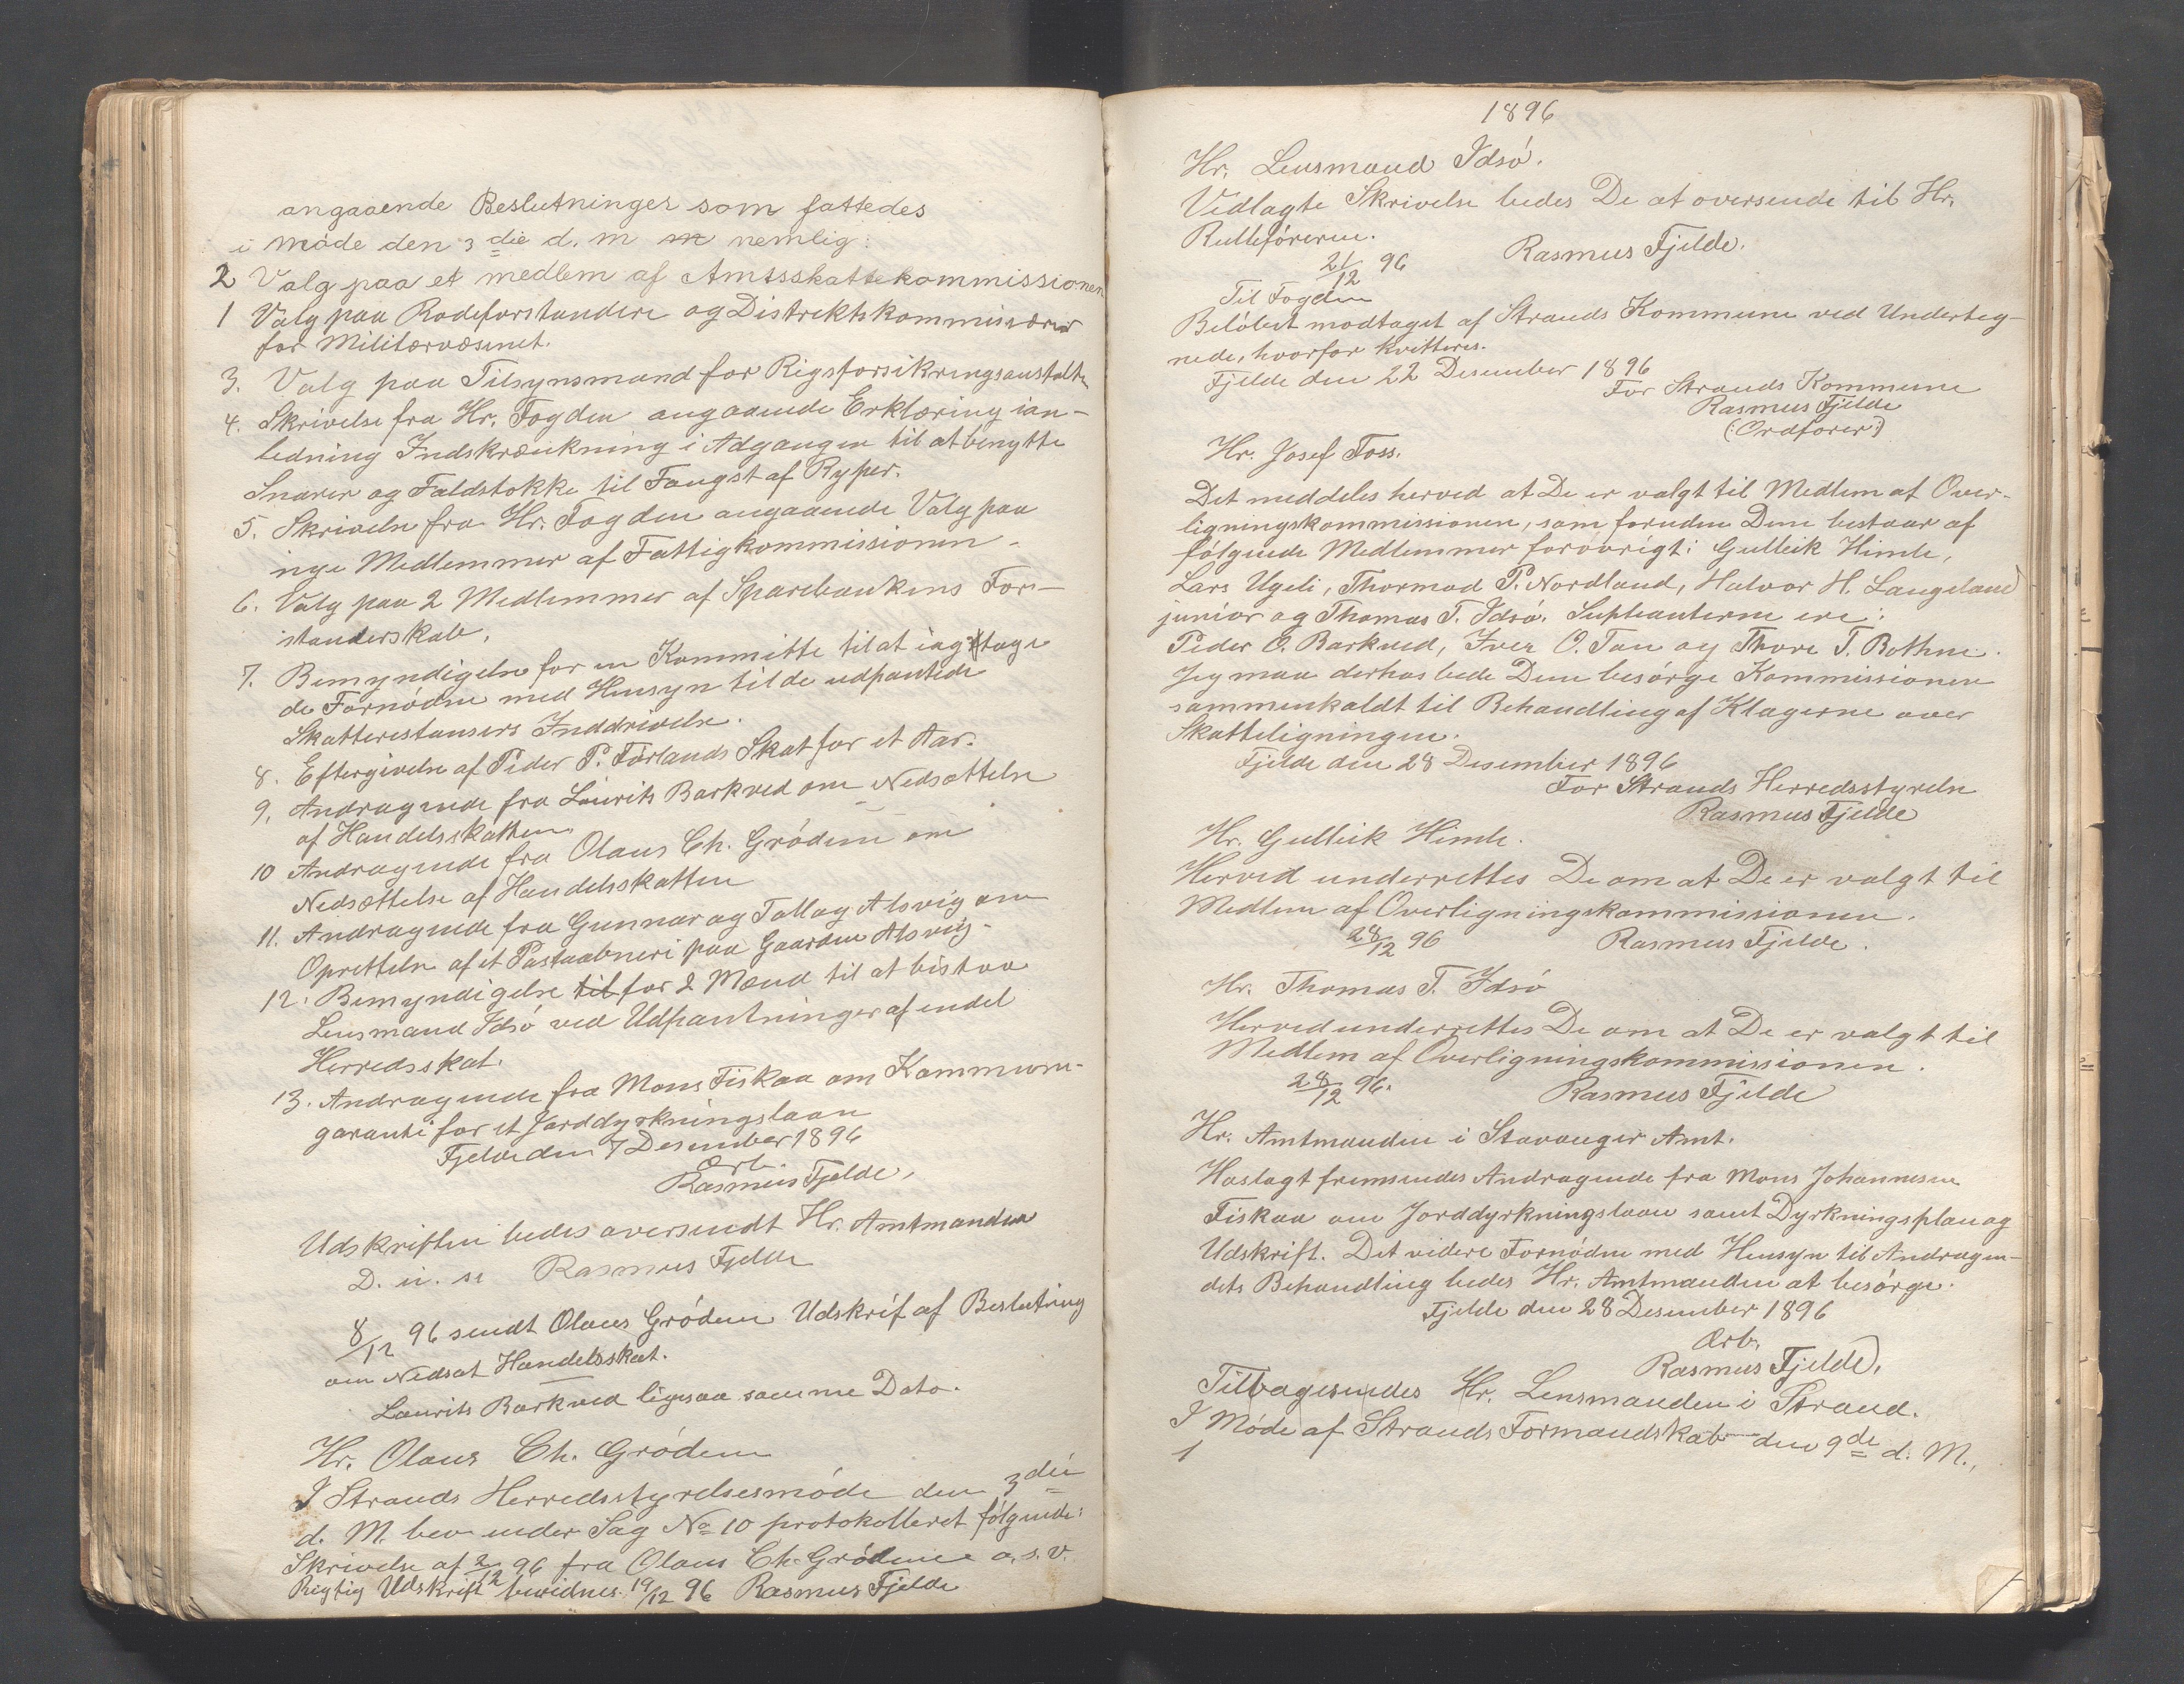 angaaende Beslutninger som fattedes
i Møde den 3 die d. M nemlig:
2 Valg paa et medlem af Amtsskattekommissionen
1 Valg paa Rodeforstandere og Distriktskommissærer
for Militærvæsenet.
3. Valg paa Tilsynsmand for Rigsforsikringsanstalten
4. Skrivelse fra Hr. Fogden angaaende Erklæring ian-
ledning Indskrænkning i Adgangen til at benytte
Snarer og Faldstokke til Fangst af Ryper.
5. Skrivelse fra Hr. Fogden angaaende Valg paa
nye Medlemmer af Fattigkommissionen.
6. Valg paa 2 Medlemmer af Sparebankens For-
standerskab.
7. Bemyndigelse for en Kommitte til at iagttage
de Fornødne med Hensyn til de udpantede
Skatterestansers Inddrivelse.
8. Eftergivelse af Peder P. Førlands Skat for et Aar.
9. Andragende fra Laurits Barkved om Nedsættelse
af Handelsskatten
10 Andragende fra Olaus Ch. Grödem om
Nedsættelse af Handelsskatten
11. Andragende fra Gunnar og Tollag Alsvig om
Oprettelse af et Postaabneri paa Gaarden Alsvig.
12. Bemyndigelse til for 2 Mænd til at bistaa
Lensmand Idsö ved Udpantninger af endel
Herredsskat.
13. Andragende fra Mons Fiskaa om Kommune-
garanti for et Jorddyrkningslaan
Fjelde den 7 Desember 1896
Ærb.
Rasmus Fjelde,
Udskriften bedes oversendt Hr. Amtmanden
D. u. s. Rasmus Fjelde
8/12 96 sendt Olaus Grödem Udskrif af Beslutning
om Nedsat Handelsskat.
Laurits Barkved ligesaa samme Dato.
Hr. Olaus Ch. Grödem
I Strands Herredsstyrelsesmöde den 3 die
d. M. blev under Sag No 10 protokolleret fölgende:
Skrivelse af 2/12 96 fra Olaus Ch. Grödem o. s. v.
Rigtig Udskrift bevidnes. 19/12 96 Rasmus Fjelde
1896
Hr. Lensmand Idsö.
Vedlagte Skrivelse bedes De at oversende til Hr.
Rulleföreren.
21/12 96 Rasmus Fjelde.
Til Fogden
Belöbet modtaget af Strands Kommune ved Underteg-
nede, hvorfor kvitteres.
Fjelde den 22 Desember 1896
For Strands Kommune
Rasmus Fjelde
(: Ordförer :)
Hr. Josef Foss.
Det meddeles herved at De er valgt til Medlem af Over-
ligningskommissionen, som foruden Dem bestaar af
fölgende Medlemmer foröwrigt: Gulleik Himle,
Lars Ugeli, Thormod P. Nordland, Halvor H. Langeland
junior og Thomas T. Idsö. Suppleanterne ere:
Peder O. Barkved, Iver O. Tau og Thore T. Bothne.
Jeg maa derhos bede Dem besörge Kommissionen
sammenkaldt til Behandling af Klagerne over
Skatteligningen.
Fjelde den 28 Desember 1896
For Strands Herredsstyrelse
Rasmus Fjelde
Hr. Gulleik Himle.
Herved underrettes De om at De er valgt til
Medlem af Overligningskommissionen.
28/12 96 Rasmus Fjelde.
Hr. Thomas T. Idsö
Herved underrettes De om at De er valgt til
Medlem af Overligningskommissionen.
28/12 96. Rasmus Fjelde
Hr. Amtmanden i Stavanger Amt.
Hoslagt fremsendes Andragende fra Mons Johannesen
Fiskaa om Jorddyrkningslaan samt Dyrkningsplan og
Udskrift. Det videre Fornödne med Hensyn til Andragen-
dets Behandling bedes Hr. Amtmanden at besörge.
Fjelde den 28 Desember 1896
Ærb.
Rasmus Fjelde,
Tilbagesendes Hr. Lensmanden i Strand.
I Möde af Strands Formandskab den 9de d. M.,
1